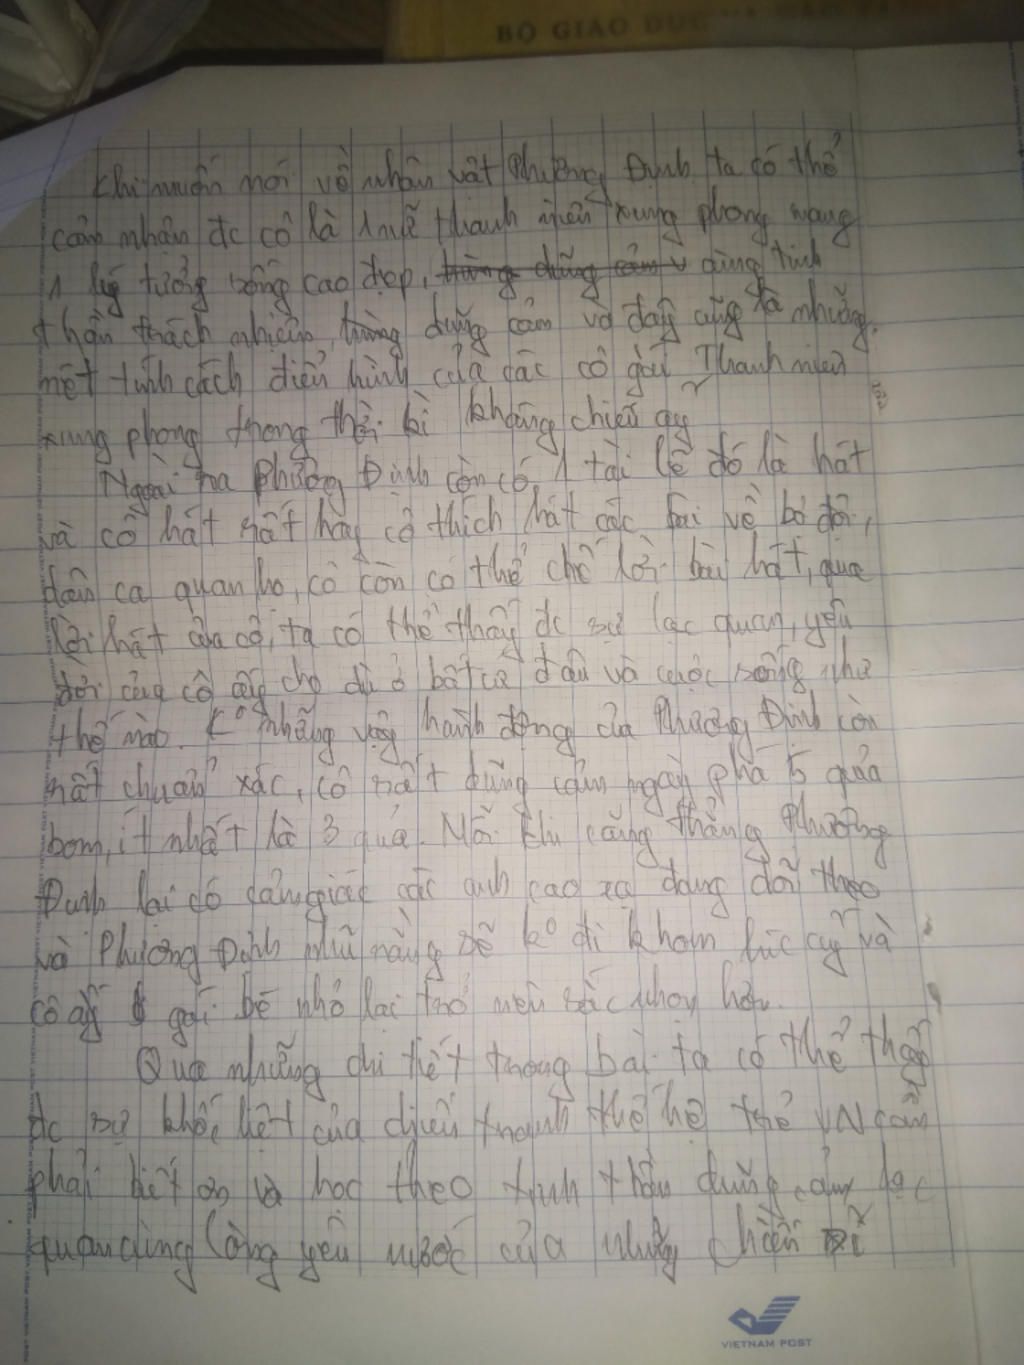 BỘ GIAO DỤC
Khi muốn nói về nhân vật Phương Định ta có thể
cảm nhận đc cô là 1 nữ thanh niên xung phong mang
1 lý tưởng sống cao đẹp, cùng tinh
thần trách nhiệm, dũng cảm và đây cũng là những
một tính cách điển hình của các cô gái Thanh niên
xung phong trong thời kì kháng chiến ấy
Ngoài ra Phương Định còn có 1 tài lẻ đó là hát
và cô hát rất hay cô thích hát các bài về bộ đội,
dân ca quan họ, cô còn có thể chế lời bài hát, qua
lời hát của cô, ta có thể thấy đc sự lạc quan, yêu
đời của cô ấy cho dù ở bất cứ đâu và cuộc sống như
thế nào. K° những vậy hành động của Phương Định còn
rất chuẩn xác, cô rất dũng cảm ngày phá 5 quả
bom, ít nhất là 3 quả. Mỗi khi căng thẳng Phương
Định lại có cảm giác các anh cao xạ đang dõi theo
và Phương Định nhủ rằng sẽ k° đi khom lúc ấy và
cô ấy gái bé nhỏ lại trở nên
Qua những chi tiết trong bài ta có thể thấy
đc sự khốc liệt của chiến tranh thế hệ trẻ VN cần
phải biết ơn và học theo tinh thần dũng cảm lạc
quan cùng lòng yêu nước của những chiến sĩ
VIETNAM POST